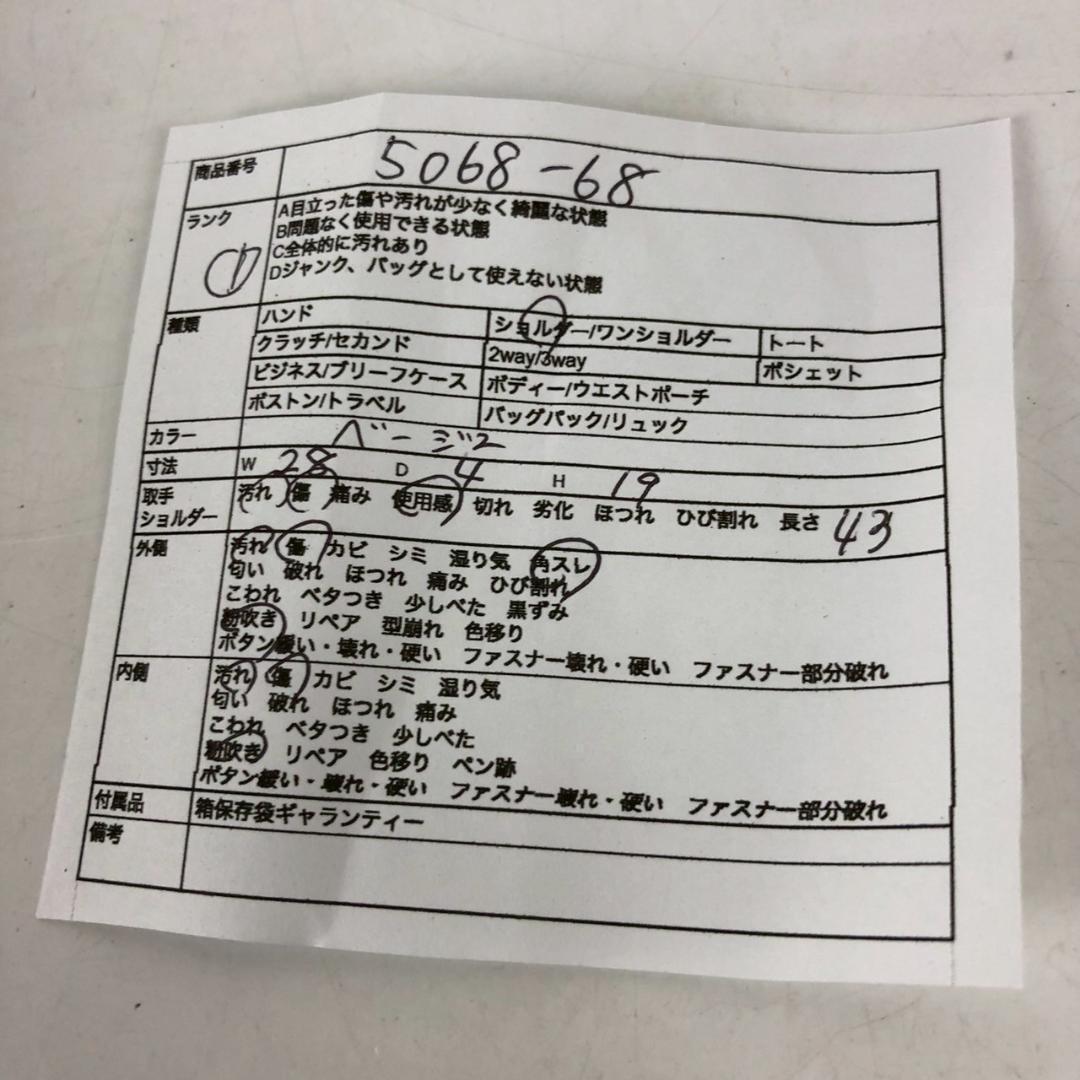 商品番号 5068-68
ランク
A目立った傷や汚れが少なく綺麗な状態
B問題なく使用できる状態
C全体的に汚れあり
Dジャンク、バッグとして使えない状態
種類 ハンド ショルダー/ワンショルダー トート
クラッチ/セカンド 2way/3way ポシェット
ビジネス/ブリーフケース ボディー/ウエストポーチ
ボストン/トラベル バッグパック/リュック
カラー ベージュ
寸法 W 28 D 4 H 19
取手 ショルダー 汚れ 傷 痛み 使用感 切れ 劣化 ほつれ ひび割れ 長さ 43
外側 汚れ 傷 カビ シミ 湿り気 角スレ
匂い 破れ ほつれ 痛み ひび割れ
こわれ ベタつき 少しべた 黒ずみ
粉吹き リペア 型崩れ 色移り
ボタン緩い・壊れ・硬い ファスナー壊れ・硬い ファスナー部分破れ
内側 汚れ 傷 カビ シミ 湿り気
匂い 破れ ほつれ 痛み
こわれ ベタつき 少しべた
粉吹き リペア 色移り ペン跡
ボタン緩い・壊れ・硬い ファスナー壊れ・硬い ファスナー部分破れ
付属品 箱保存袋ギャランティー
備考